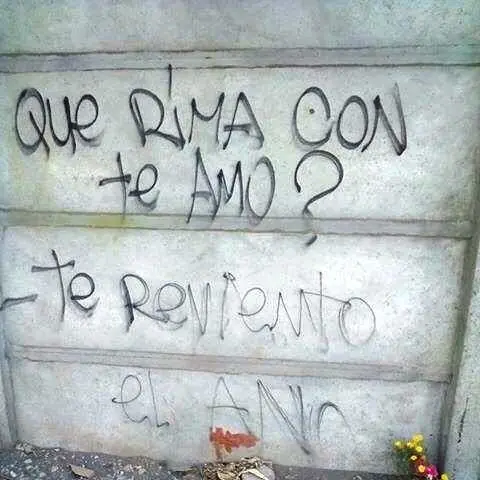 QUE RIMA CON
te AMO?
- te Reviento
eL ANo